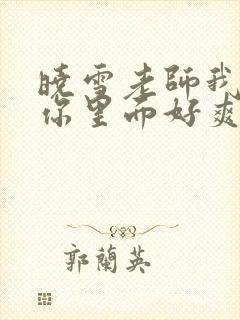 晓雪老師我
你里面好爽
郭蘭英